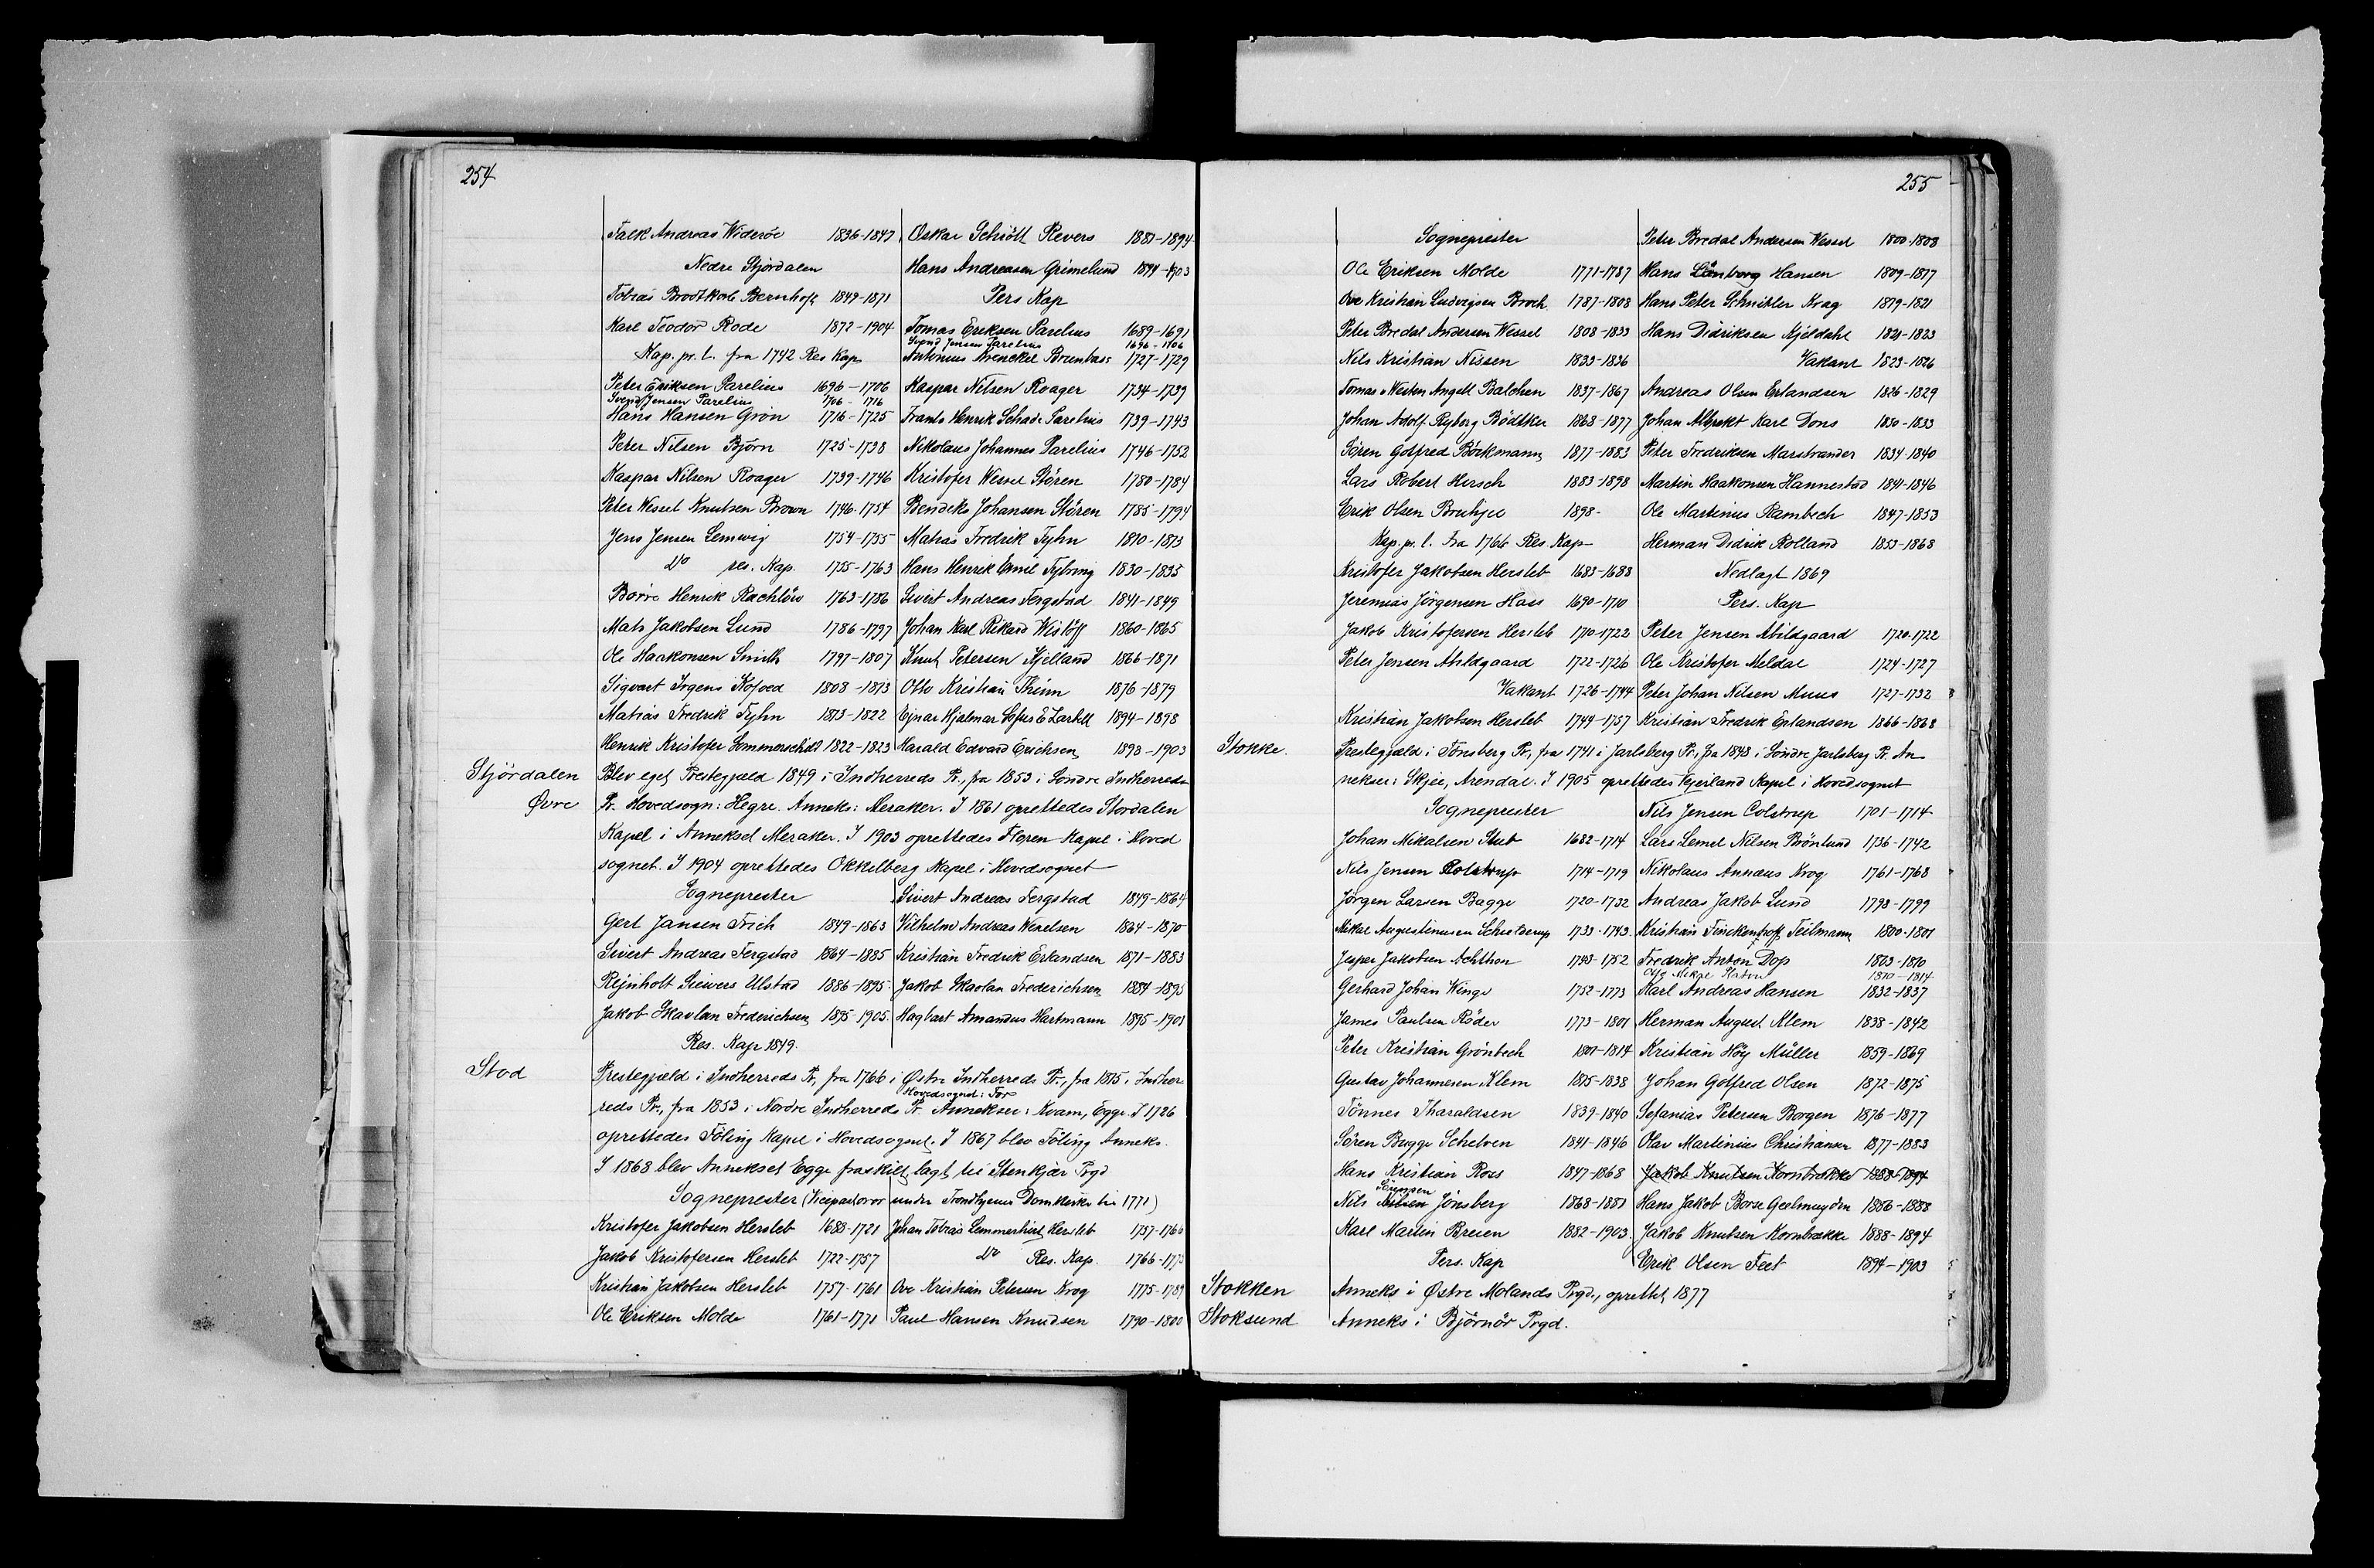 254
Falk Andreas Wideröe 1836-1847
Nedre Stjördalen
Tobias Brodtkorb Bernhoft 1849-1871
Karl Teodor Rode 1872-1904
Kap. pr. l. fra 1742 Res Kap
Peter Eriksen Parelius 1696-1706
Svend Jensen Parelius 1706-1716
Hans Hansen Grön 1716-1725
Peter Nilsen Björn 1725-1738
Kaspar Nilsen Roager 1739-1746
Peter Wessel Knutsen Brown 1746-1754
Jens Jensen Lemvig 1754-1755
Do res. Kap. 1755-1763
Börre Henrik Rachlöw 1763-1786
Mats Jakobsen Lund 1786-1797
Ole Haakonsen Smith 1797-1807
Sigvart Irgens Kofoed 1808-1813
Matias Fredrik Fyhn 1813-1822
Henrik Kristofer Sommerschildt 1822-1823
Oskar Schiött Revers 1881-1894
Hans Andreasen Grimelund 1894-1903
Pers Kap
Tomas Eriksen Parelius 1689-1691
Svend Jensen Parelius 1696-1706
Antonius Wenckel Brunbass 1727-1729
Kaspar Nilsen Roager 1734-1739
Frants Henrik Schade Parelius 1739-1743
Nikolaus Johannes Parelius 1746-1752
Kristofer Wessel Stören 1780-1784
Bendiks Johansen Stören 1785-1794
Matias Fredrik Fyhn 1810-1813
Hans Henrik Emil Tybring 1830-1835
Sivert Andreas Fergstad 1841-1849
Johan Karl Rikard Wislöff 1860-1865
Knut Petersen Kjelland 1866-1871
Otto Kristian Thinn 1876-1879
Ejnar Hjalmar Lofus E Zartell 1894-1898
Harald Edvard Erichsen 1898-1903
Stjördalen Øvre
Blev eget Prestegjæld 1849 i Indherreds Pr., fra 1853 i Söndre Indherreds
Pr. Hovedsogn: Hegre. Anneks: Meraker. I 1861 oprettedes Stordalen
Kapel i Annekset Meraker. I 1903 oprettedes Floren Kapel i Hoved
sognet. I 1904 oprettedes Okkelberg Kapel i Hovedsognet
Sogneprester
Gert Jansen Frich 1849-1863
Sivert Andreas Fergstad 1864-1885
Rejnholt Sievers Ulstad 1886-1895
Jakob Skavlan Frederichsen 1895-1905
Res. Kap 1849.
Sivert Andreas Fergstad 1849-1864
Vilhelm Andreas Wexelsen 1864-1870
Kristian Fredrik Erlandsen 1871-1883
Jakob Skavlan Frederichsen 1884-1895
Hagbart Amandus Hartmann 1895-1901
Stod
Prestegjæld i Indherreds Pr, fra 1766 i Østre Indherreds Pr., fra 1815 i Indher
Hovedsognet: For
reds Pr., fra 1853 i Nordre Indherreds Pr. Annekser: Kvam, Egge. I 1726
oprettedes Föling Kapel i Hovedsognet. I 1867 blev Föling Anneks.
I 1868 blev Annekset Egge fraskilt, lagt til Stenkjær Prgd
Sogneprester (Vicepastorer under Trondhjems Domkirke til 1771)
Kristofer Jakobsen Hersleb 1688-1721
Jakob Kristofersen Hersleb 1722-1757
Kristian Jakobsen Hersleb 1757-1761
Ole Eriksen Molde 1761-1771
Johan Tobias Lemmerhirt Hersleb 1757-1766
Do Res. Kap. 1766-1775
Ove Kristian Petersen Krog 1775-1789
Paul Hansen Knudsen 1790-1800
255
Sogneprester
Ole Eriksen Molde 1771-1787
Ove Kristian Ludvigsen Broch 1787-1808
Peter Bredal Andersen Wessel 1808-1833
Nils Kristian Nissen 1833-1836
Tomas Westen Angell Balchen 1837-1867
Johan Adolf Ryberg Bödtker 1868-1877
Sören Golfred Böckmann 1877-1883
Lars Robert Hersch 1883-1898
Erik Olsen Bruhjel 1898-
Kap. pr. l. fra 1766 Res. Kap
Kristofer Jakobsen Hersleb 1683-1688
Jeremias Jörgensen Hass 1690-1710
Jakob Kristofersen Hersleb 1710-1722
Peter Jensen Abildgaard 1722-1726
Vakant 1726-1744
Kristian Jakobsen Hersleb 1744-1757
Peter Bredal Andersen Wessel 1800-1808
Hans Lönborg Hansen 1809-1817
Hans Peter Schnitler Krag 1819-1821
Hans Didriksen Kjeldahl 1821-1823
Vakant 1823-1826
Andreas Olsen Erlandsen 1826-1829
Johan Albrekt Karl Dons 1830-1833
Peter Fredriksen Marstrander 1834-1840
Martin Haakonsen Hannestad 1841-1846
Ole Martinus Rambech 1847-1853
Herman Didrik Rolland 1853-1868
Nedlagt 1869
Pers. Kap
Peter Jensen Abildgaard 1720-1722
Ole Kristofer Meldal 1724-1727
Peter Johan Nilsen Muus 1727-1732
Kristian Fredrik Erlandsen 1866-1868
Stokke.
Prestegjæld i Tönsberg Pr., fra 1741 i Jarlsberg Pr., fra 1848 i Söndre Jarlsberg Pr. An
nekser: Skjee, Arendal. I 1905 oprettedes Fjerland Kapel i Hovedsognet
Sogneprester
Johan Mikalsen Stub 1682-1714
Nils Jensen Colstrup 1714-1719
Jörgen Larsen Bagge 1720-1732
Mikal Augustinussen Schielderup 1733-1743
Jesper Jakobsen Achthon 1743-1752
Gerhard Johan Winge 1752-1773
James Paulsen Röder 1773-1801
Peter Kristian Grönbech 1801-1814
Gustav Johannesen Klem 1815-1838
Tönnes Tharaldsen 1839-1840
Sören Bugge Schelven 1841-1846
Hans Kristian Ross 1847-1868
Sörensen
Nils Nilsen Jönsberg 1868-1881
Karl Martin Breien 1882-1903
Pers. Kap
Nils Jensen Colstrup 1701-1714
Lars Lemel Nilsen Brönlund 1736-1742
Nikolaus Annæus Krog 1761-1768
Andreas Jakob Lund 1798-1799
Kristian Finckenhoff Teilmann 1800-1801
Fredrik Anton Dop 1803-1810
1810-1814
Karl Andreas Hansen 1832-1837
Herman August Klem 1838-1842
Kristian Höy Müller 1859-1869
Johan Golfred Olsen 1872-1875
Sefanias Petersen Borgen 1876-1877
Olav Martinius Christiansen 1877-1883
Jakob Knutsen Kornbrække 1888-1894
Hans Jakob Borse Geelmuyden 1886-1888
Jakob Knutsen Kornbrække 1888-1894
Erik Olsen Feet 1894-1903
Stokken
Anneks i Østre Molands Prgd., oprettet 1877
Stoksund
Anneks i Björnör Prgd.